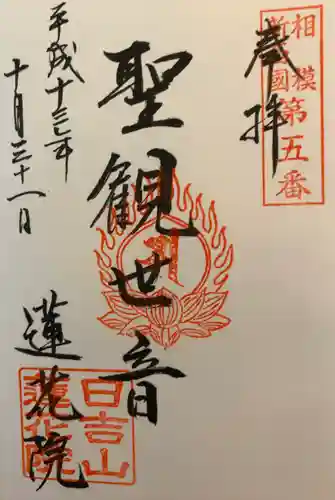 相模
國
第五番
奉拝
聖觀世音
平成十三年
十月三十一日
蓮花院
日吉山
蓮花院